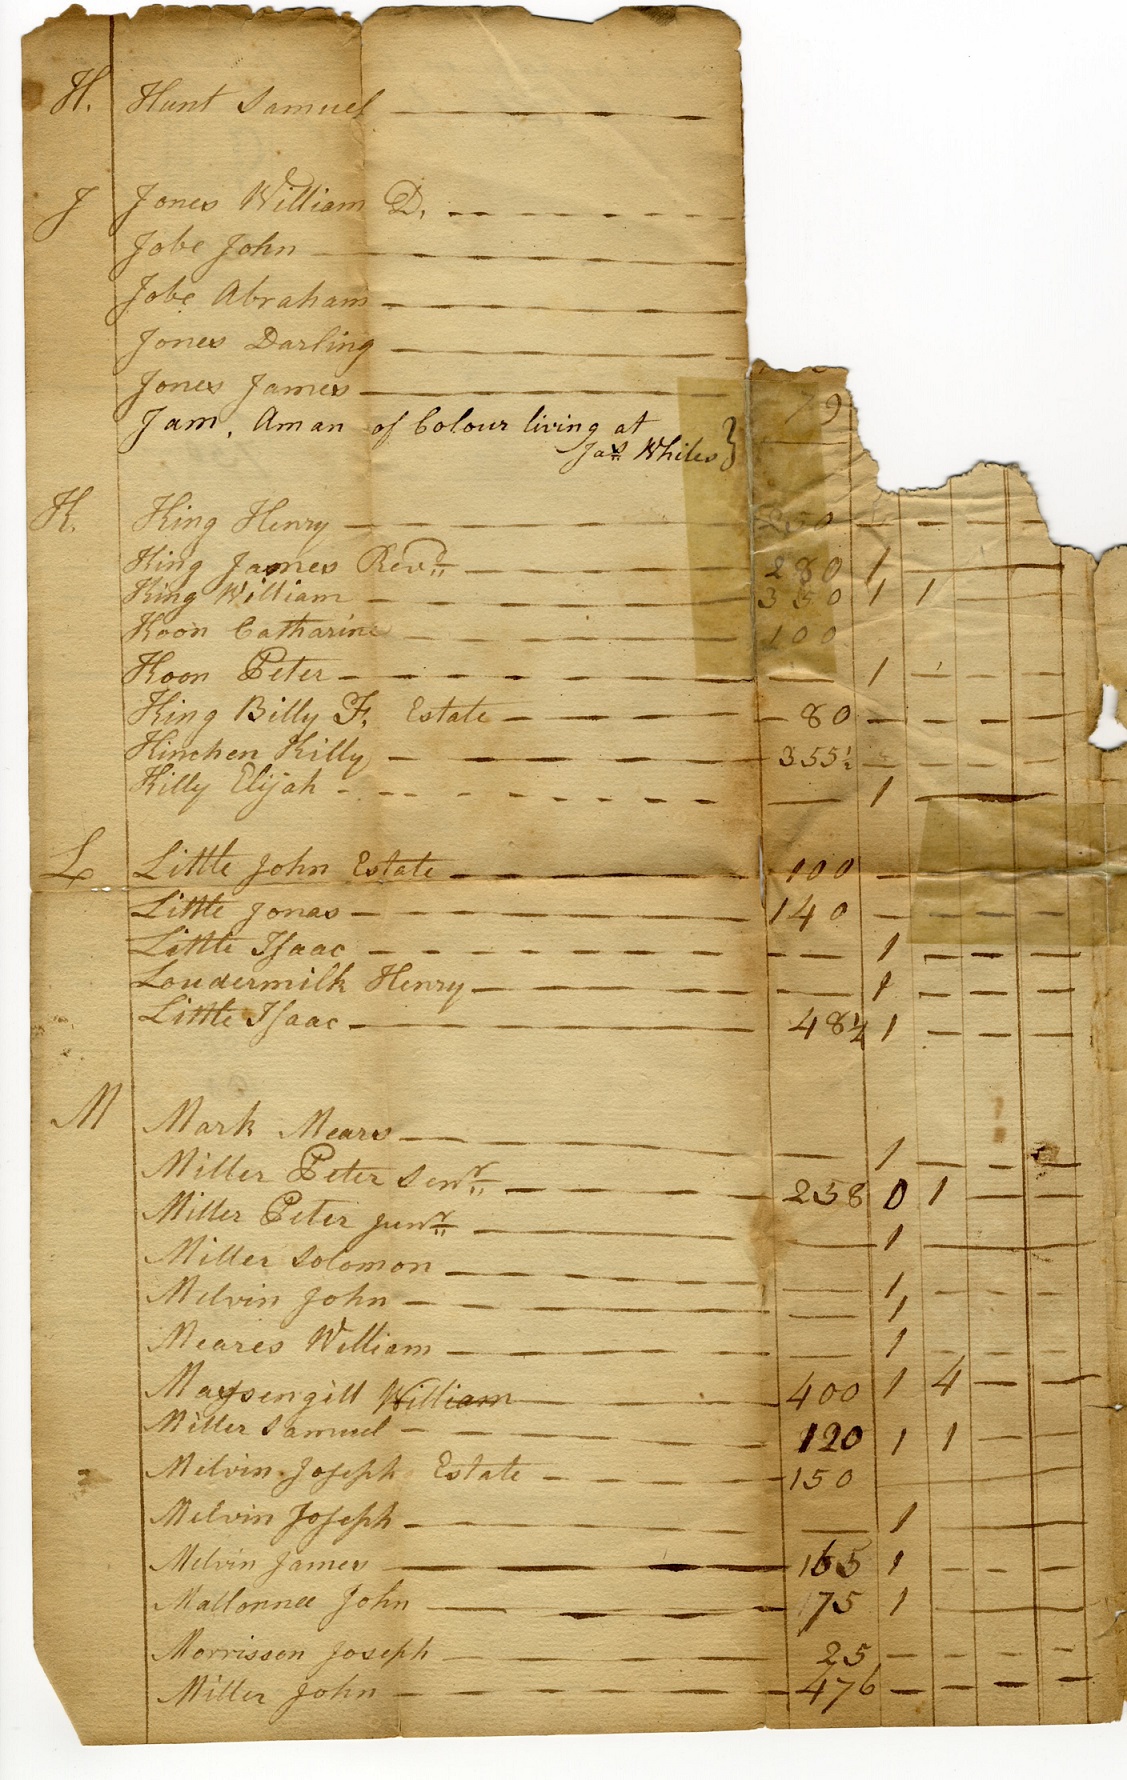 H. Hunt Samuel
J Jones William D.
Jobe John
Jobe Abraham
Jones Darling
Jones James 79
Jam, Aman of Colour living at
Jas Whites }
K. King Henry 250 —
King James Revd 280 1
King William 350 1 1
Koon Catharine 100
Koon Peter — 1
King Billy F. Estate 80 —
Kinchen Killy 355½
Killy Elijah — 1
L Little John Estate 100 —
Little Jonas 140 —
Little Isaac — 1
Loudermilk Henry — 1
Little Isaac 48¼ 1
M Mark Mears — 1
Miller Peter Senr 258 0 1
Miller Peter Junr — 1
Miller Solomon — 1
Melvin John — 1
Meares William — 1
Massengill William 400 1 4
Miller Samuel 120 1 1
Melvin Joseph Estate 150
Melvin Joseph — 1
Melvin James 165 1
Mallonnee John 175 1
Morrisson Joseph 25 —
Miller John 476 —